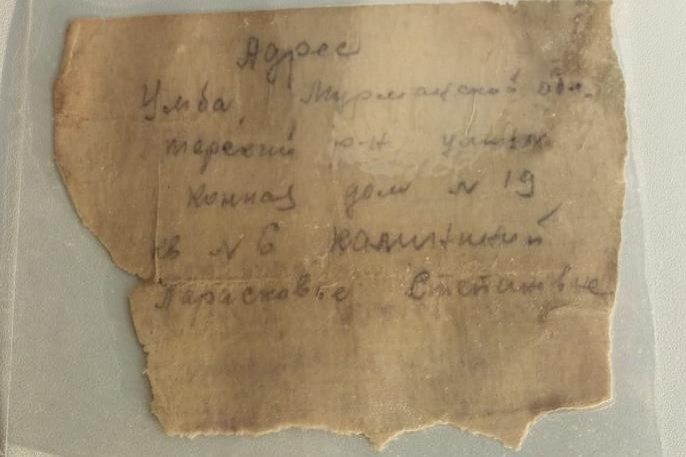 Адрес
Умба Мурманской обл.
терский р-н улица
конная дом N 19
кв N 6 Калининой
Парасковье Степановне